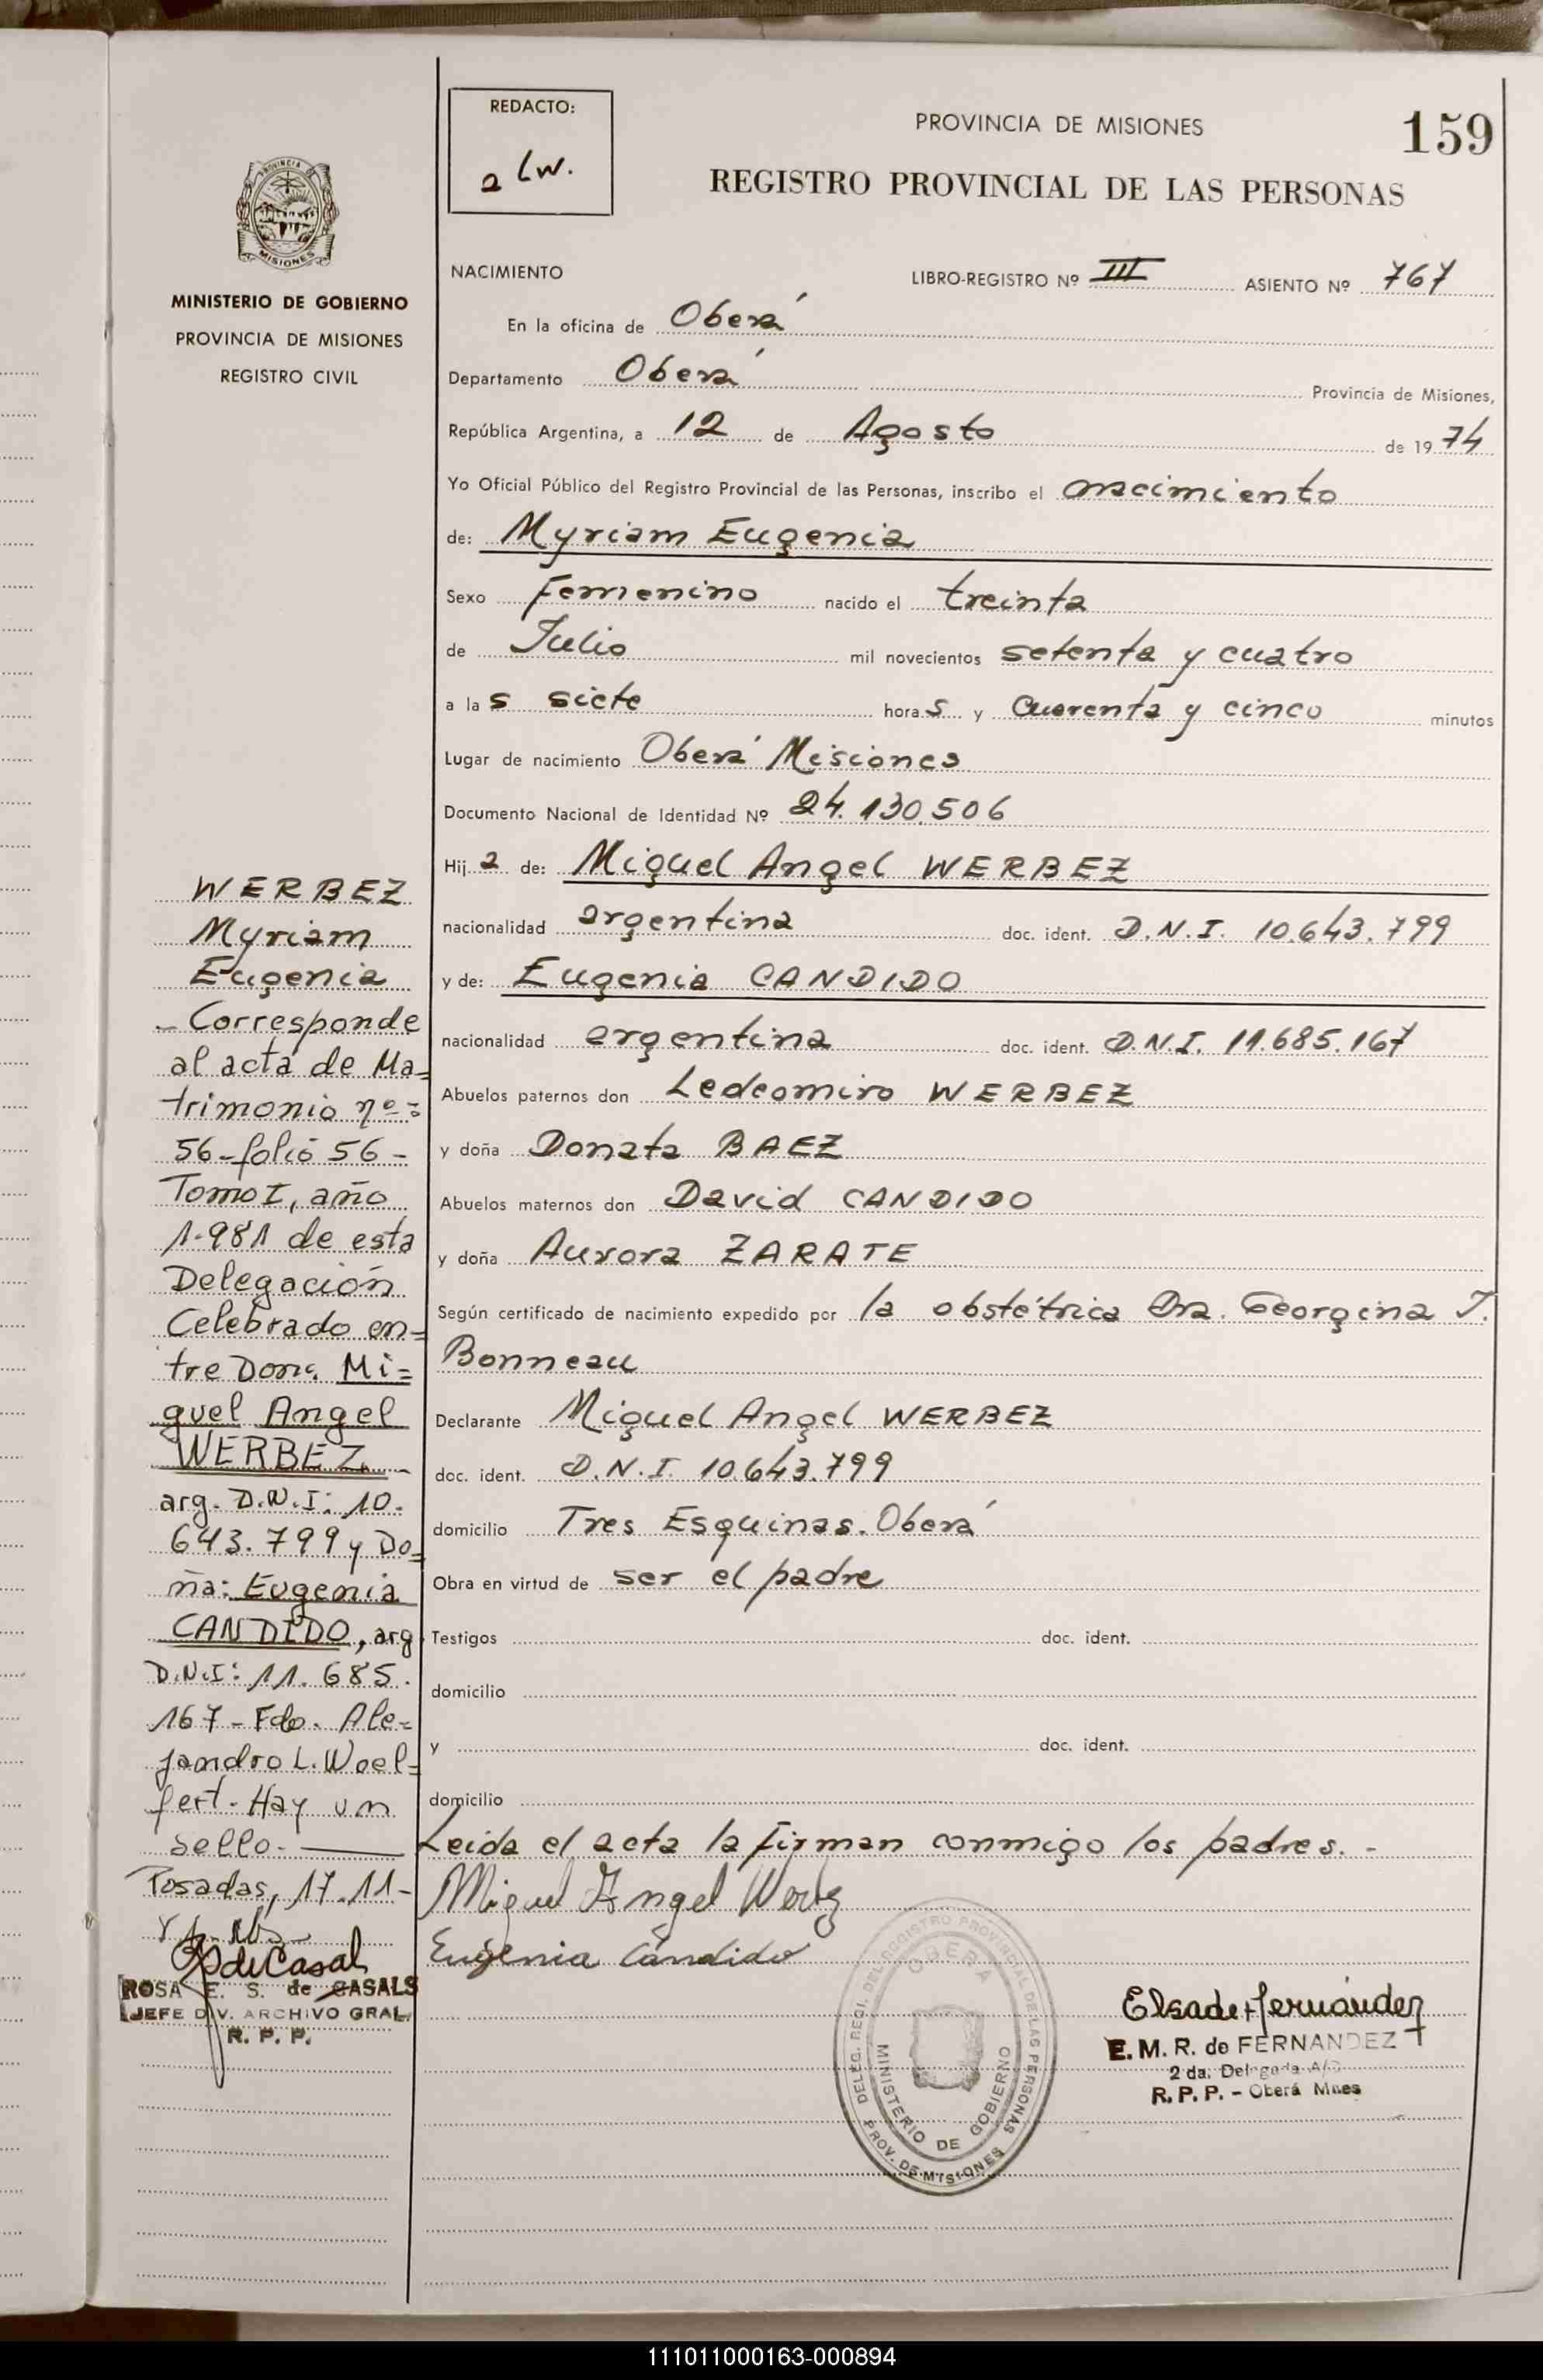 REDACTO:
a lw.
PROVINCIA DE MISIONES
159
REGISTRO PROVINCIAL DE LAS PERSONAS
PROVINCIA DE
MISIONES
MINISTERIO DE GOBIERNO
PROVINCIA DE MISIONES
REGISTRO CIVIL
NACIMIENTO LIBRO-REGISTRO Nº III ASIENTO Nº 767
En la oficina de Oberá
Departamento Oberá Provincia de Misiones,
República Argentina, a 12 de Agosto de 1974
Yo Oficial Público del Registro Provincial de las Personas, inscribo el nacimiento
de: Myriam Eugenia
Sexo Femenino nacido el treinta
de Julio mil novecientos setenta y cuatro
a las siete horas y cuarenta y cinco minutos
Lugar de nacimiento Oberá Misiones
Documento Nacional de Identidad Nº 24.130.506
Hija de: Miguel Angel WERBEZ
nacionalidad argentina doc. ident. D.N.I. 10.643.799
y de: Eugenia CANDIDO
nacionalidad argentina doc. ident. D.N.I. 11.685.167
Abuelos paternos don Ledeomiro WERBEZ
y doña Donata BAEZ
Abuelos maternos don David CANDIDO
y doña Aurora ZARATE
Según certificado de nacimiento expedido por la obstétrica Dra. Georgina J.
Bonneau
Declarante Miguel Angel WERBEZ
doc. ident. D.N.I. 10.643.799
domicilio Tres Esquinas. Oberá
Obra en virtud de ser el padre
Testigos doc. ident.
domicilio
y doc. ident.
domicilio
Leida el acta la firman conmigo los padres. -
Miguel Angel Werbez
Eugenia Candido
DELEG. REGI. DEL REGISTRO PROVINCIAL DE LAS PERSONAS
OBERA
MINISTERIO DE GOBIERNO
PROV. DE MISIONES
Elsa de Fernández
E. M. R. de FERNANDEZ
2 da. Delegada A/C
R. P. P. - Oberá Mnes
WERBEZ
Myriam
Eugenia
- Corresponde
al acta de Ma-
trimonio nº:
56-folio 56-
Tomo I, año
1.981 de esta
Delegación
Celebrado en-
tre Don: Mi=
guel Angel
WERBEZ
arg. D.N.I: 10.
643.799 y Do=
ña: Eugenia
CANDIDO, arg
D.N.I: 11.685.
167 - Fdo. Ale=
jandro L. Woel=
fert. Hay un
sello.
Posadas, 17.11-
de Casal
ROSA E. S. de CASALS
JEFE DIV. ARCHIVO GRAL.
R. P. P.
111011000163-000894